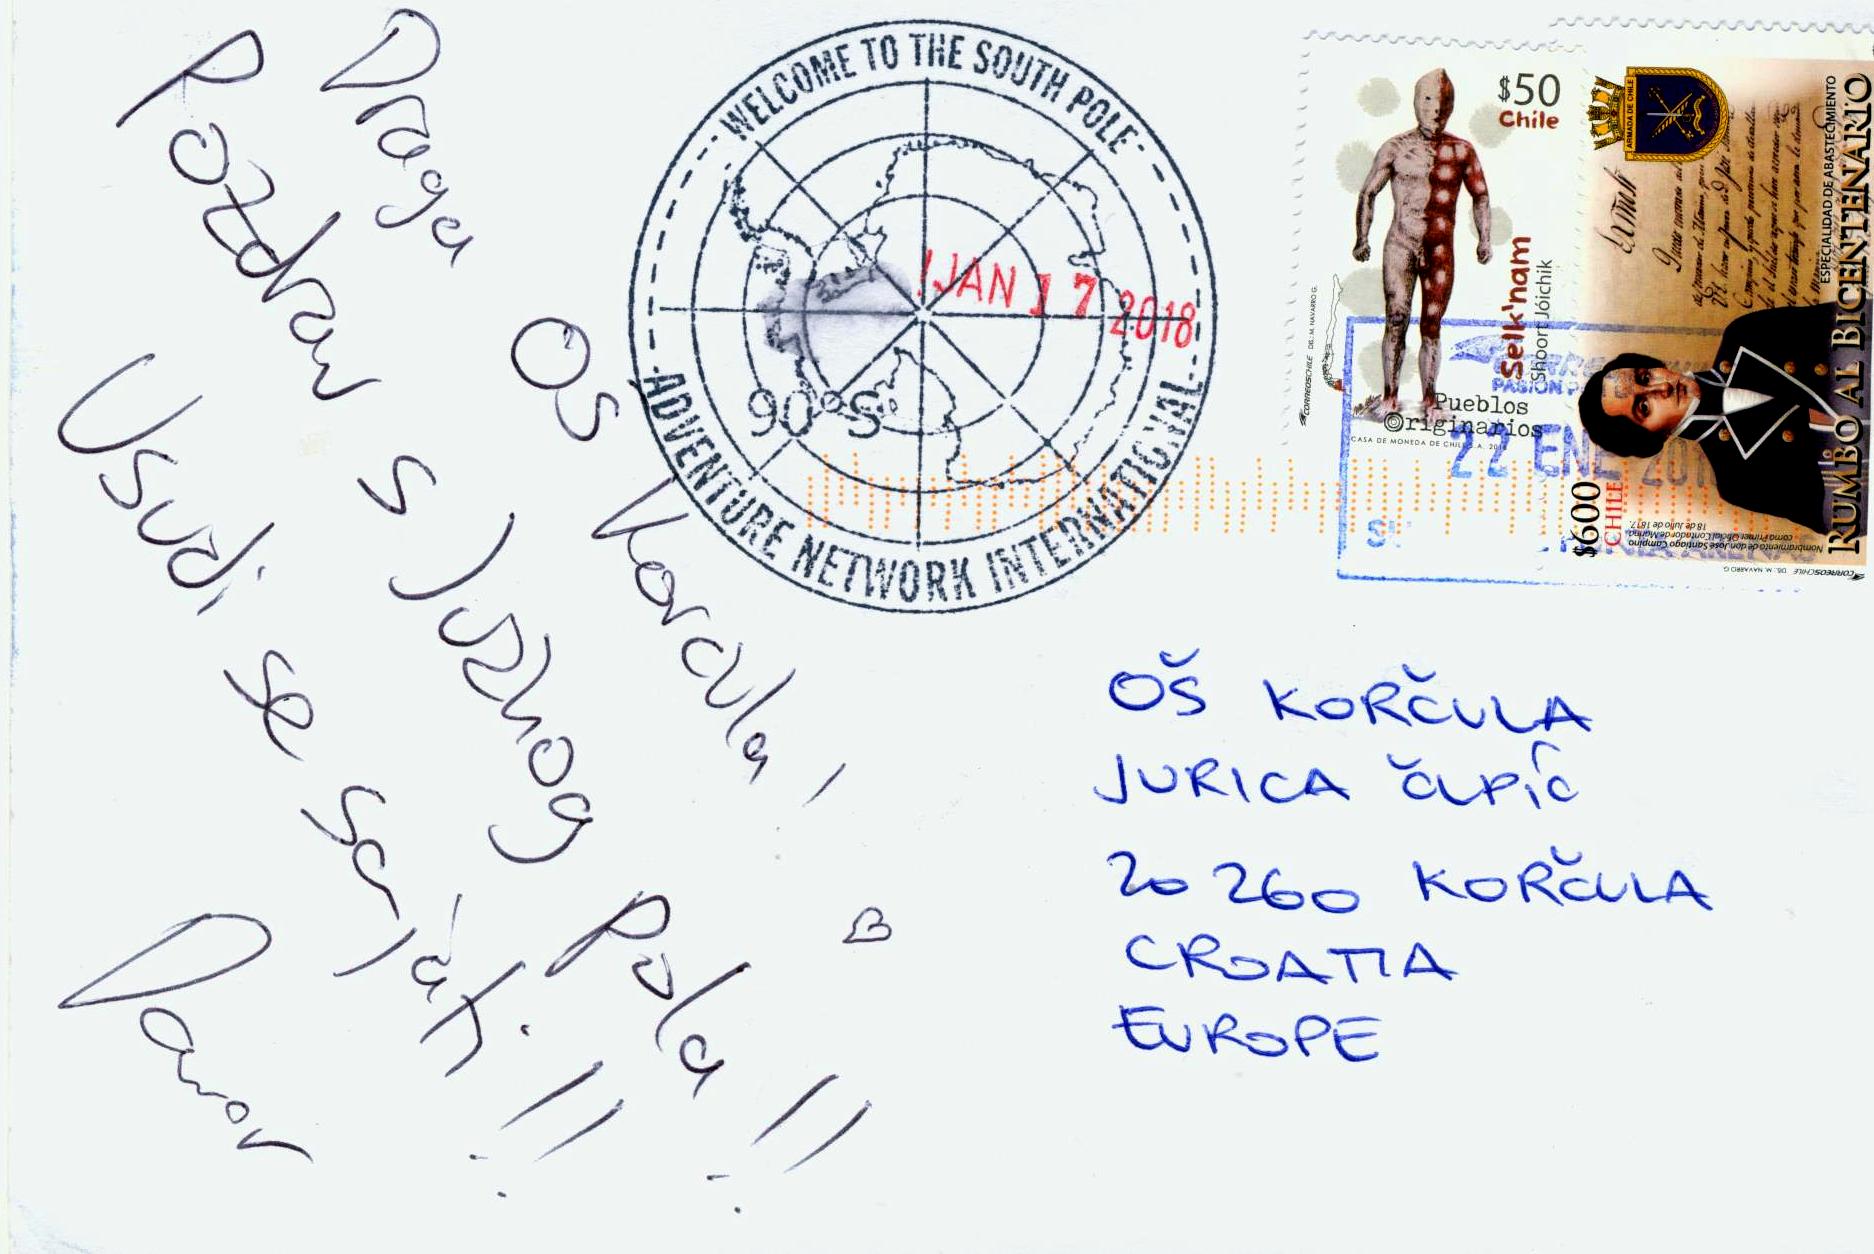 Draga OŠ Korčula!
Pozdrav s Južnog Pola!!
Usudi se sanjati!!
Damor
WELCOME TO THE SOUTH POLE
JAN 17 2018
90°S
ADVENTURE NETWORK INTERNATIONAL
$50
Chile
Selk'nam
Shoort Jóichik
Pueblos
Originarios
CASA DE MONEDA DE CHILE S.A.
CORREOSCHILE DIS.: M. NAVARRO G.
ARMADA DE CHILE
ESPECIALIDAD DE ABASTECIMIENTO
RUMBO AL BICENTENARIO
$600
CHILE
Nombramiento de don José Santiago Campino
como Primer Oficial Contador de Marina
18 de Julio de 1817.
CORREOSCHILE DIS.: M. NAVARRO G.
22 ENE 201
OŠ KORČULA
JURICA ČUPIĆ
20 260 KORČULA
CROATIA
EUROPE